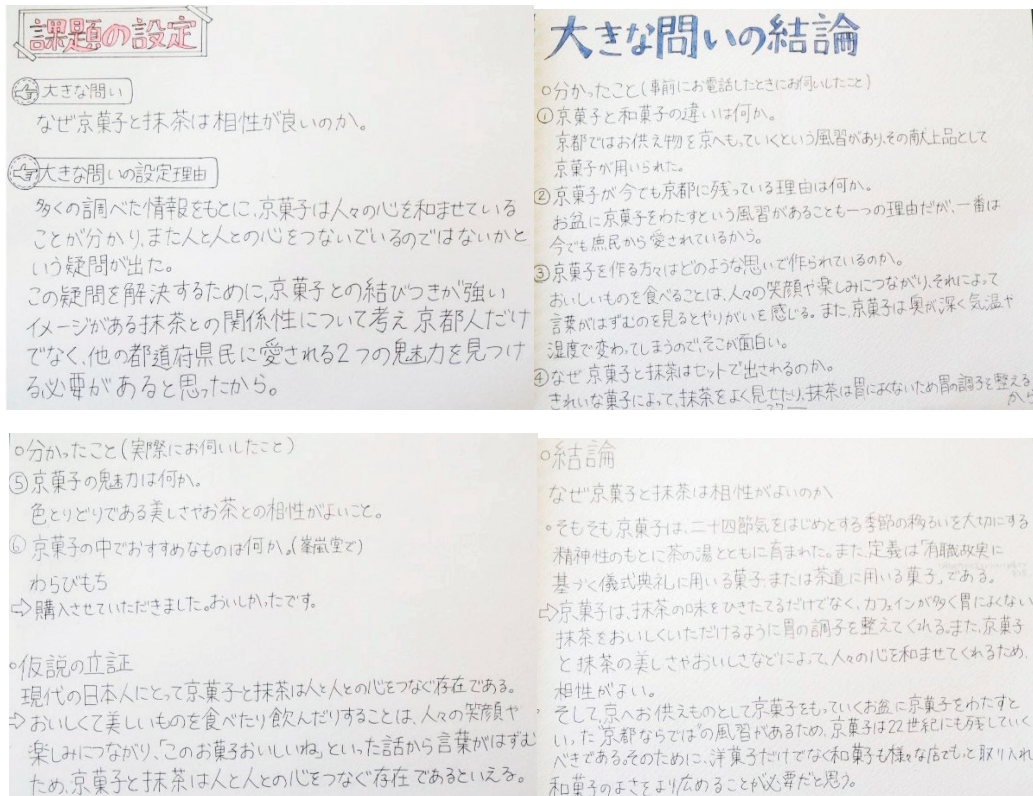 課題の設定
大きな問い
なぜ京菓子と抹茶は相性が良いのか。
大きな問いの設定理由
多くの調べた情報をもとに、京菓子は人々の心を和ませている
ことが分かり、また人と人との心をつないでいるのではないかと
いう疑問が出た。
この疑問を解決するために、京菓子との結びつきが強い
イメージがある抹茶との関係性について考え京都人だけ
でなく、他の都道府県民に愛される2つの魅力を見つけ
る必要があると思ったから。
大きな問いの結論
○分かったこと(事前にお電話したときにお伺いしたこと)
①京菓子と和菓子の違いは何か。
京都ではお供え物を京へもっていくという風習があり、その献上品として
京菓子が用いられた。
②京菓子が今でも京都に残っている理由は何か。
お盆に京菓子をわたすという風習があることも一つの理由だが、一番は
今でも庶民から愛されているから。
③京菓子を作る方々はどのような思いで作られているのか。
おいしいものを食べることは、人々の笑顔や楽しみにつながり、それによって
言葉がはずむのを見るとやりがいを感じる。また、京菓子は奥が深く気温や
湿度で変わってしまうので、そこが面白い。
④なぜ京菓子と抹茶はセットで出されるのか。
きれいな菓子によって、抹茶をよく見せたり、抹茶は胃によくないため胃の調子を整える
から
○分かったこと(実際にお伺いしたこと)
⑤京菓子の魅力は何か。
色とりどりである美しさやお茶との相性がよいこと。
⑥京菓子の中でおすすめなものは何か。(峯嵐堂で)
わらびもち
⇨購入させていただきました。おいしかったです。
○仮説の立証
現代の日本人にとって京菓子と抹茶は人と人との心をつなぐ存在である。
⇨おいしくて美しいものを食べたり飲んだりすることは、人々の笑顔や
楽しみにつながり、「このお菓子おいしいね」といった話から言葉がはずむ
ため、京菓子と抹茶は人と人との心をつなぐ存在であるといえる。
○結論
なぜ京菓子と抹茶は相性がよいのか
○そもそも京菓子は、二十四節気をはじめとする季節の移ろいを大切にする
精神性のもとに茶の湯とともに育まれた。また、定義は「有職故実に
基づく儀式典礼に用いる菓子または茶道に用いる菓子」である。
⇨京菓子は、抹茶の味をひきたてるだけでなく、カフェインが多く胃によくない
抹茶をおいしくいただけるように胃の調子を整えてくれる。また、京菓子
と抹茶の美しさやおいしさなどによって、人々の心を和ませてくれるため、
相性がよい。
そして、京へお供えものとして京菓子をもっていくお盆に京菓子をわたすと
いった"京都ならでは"の風習があるため、京菓子は22世紀にも残していく
べきである。そのために、洋菓子だけでなく和菓子も様々な店でもっと取り入れ
和菓子のよさをより広めることが必要だと思う。